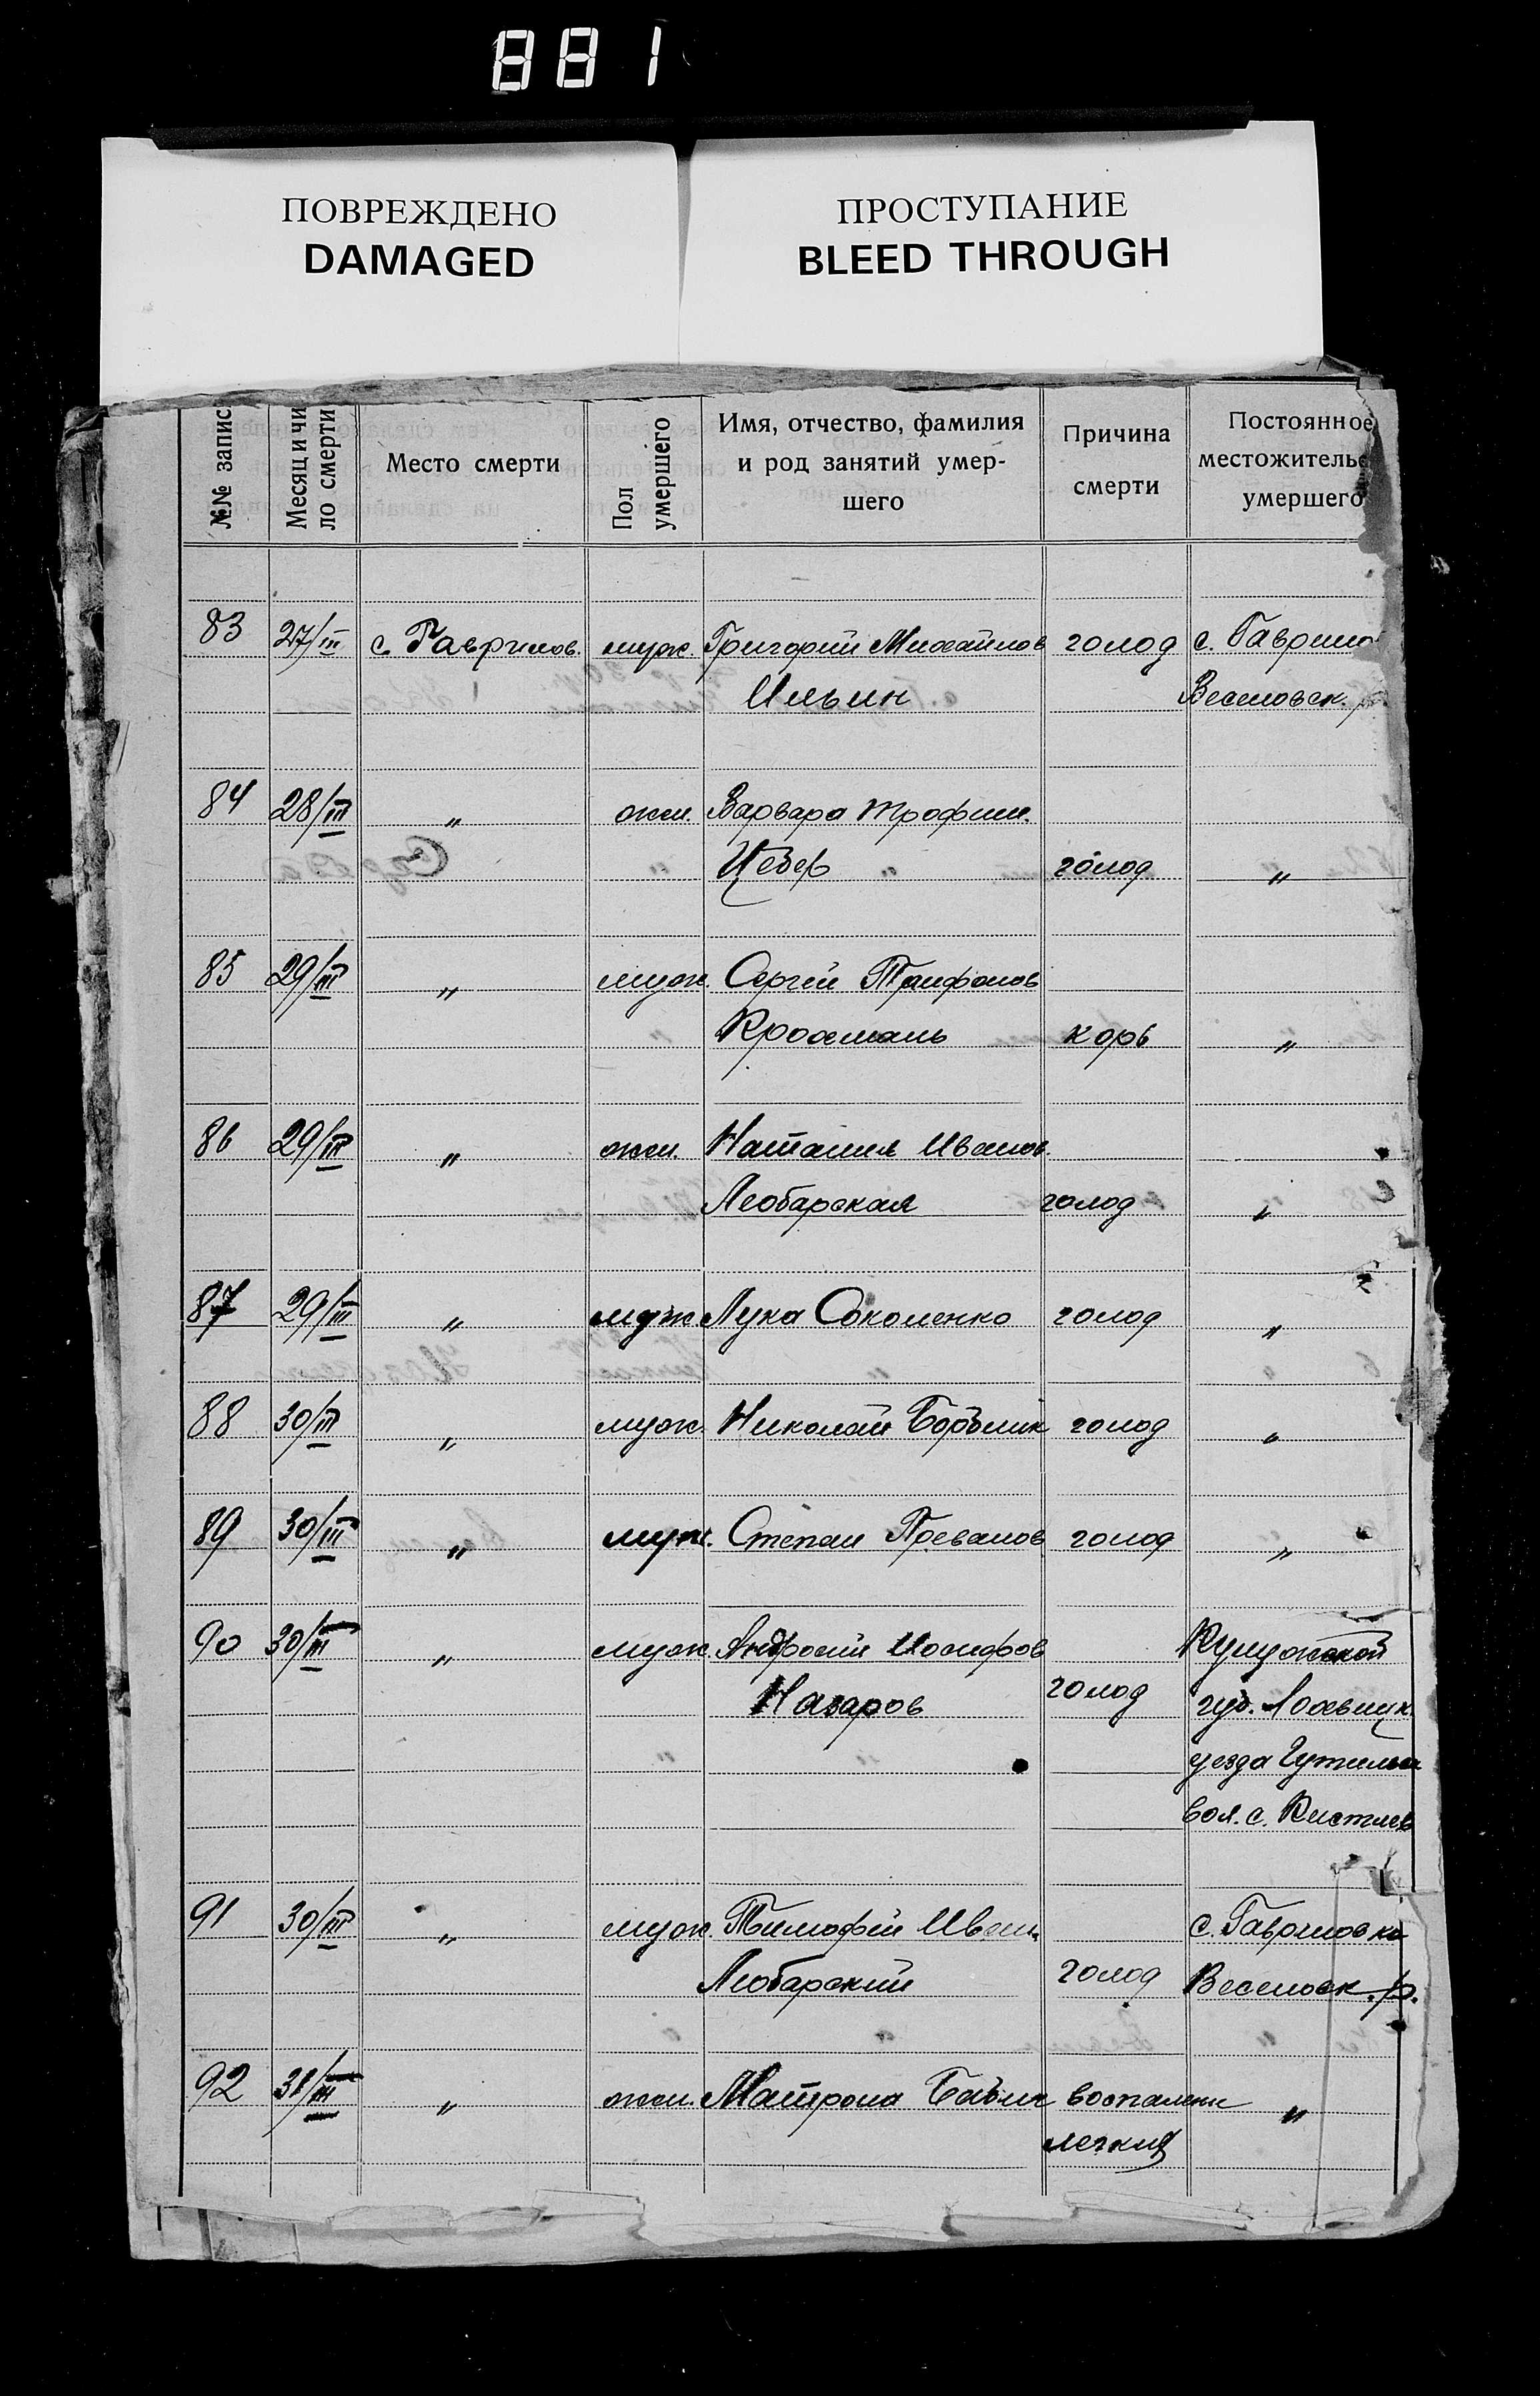 881
ПОВРЕЖДЕНО
DAMAGED
ПРОСТУПАНИЕ
BLEED THROUGH
№№ запис
Месяц и чи
ло смерти
Место смерти
Пол
умершего
Имя, отчество, фамилия
и род занятий умер-
шего
Причина
смерти
Постоянное
местожительс
умершего
83 27/III с. Гаврилов. муж. Григорий Михайлов голод с. Гаврило
Ильин Веселовск. р.
84 28/III " жен. Варвара Трофим.
Цебер голод "
85 29/III " муж. Сергей
Крохмаль корь "
86 29/III " жен. Наталия Иванов.
Любарская голод "
87 29/III " муж Лука Соколенко голод "
88 30/III " муж. Николай голод "
89 30/III " муж. Степан голод "
90 30/III " муж. Иосифов
Назаров голод губ.
уезда
вол. с.
91 30/III " муж. Тимофей Иван. с. Гавриловка
Любарский голод Веселовск. р.
92 31/III " жен. Матрона Бабич воспален "
легких